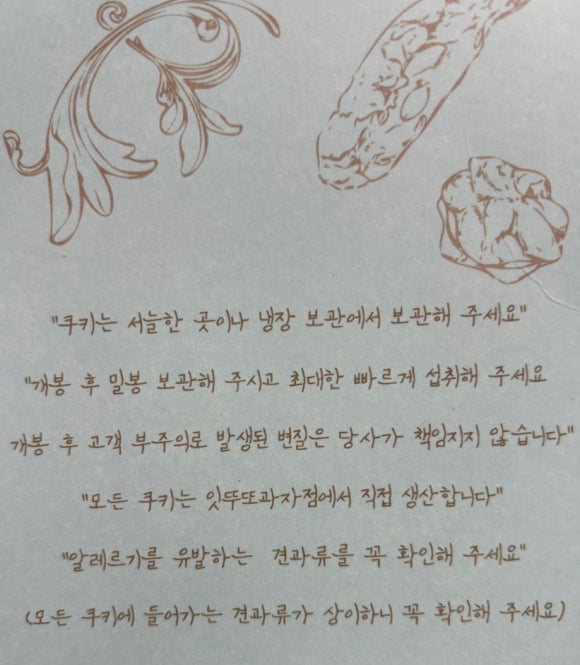 "쿠키는 서늘한 곳이나 냉장 보관에서 보관해 주세요"
"개봉 후 밀봉 보관해 주시고 최대한 빠르게 섭취해 주세요
개봉 후 고객 부주의로 발생된 변질은 당사가 책임지지 않습니다"
"모든 쿠키는 잇뚜또과자점에서 직접 생산합니다"
"알레르기를 유발하는 견과류를 꼭 확인해 주세요"
(모든 쿠키에 들어가는 견과류가 상이하니 꼭 확인해 주세요)